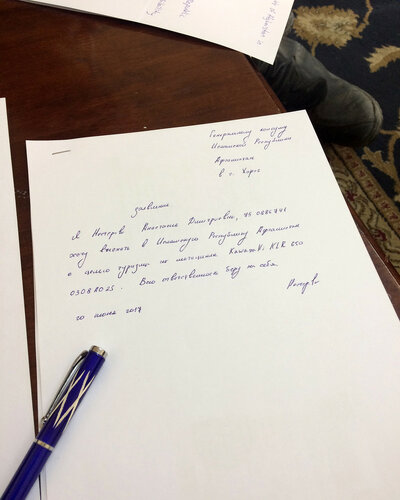 Генеральному консулу
Исламской Республики
Афганистан
в г. Хорог
заявление
Я Нестеров Константин Дмитриевич, 75 0885741
хочу въехать в Исламскую Республику Афганистан
с целью туризма на мотоцикле Kawasaki KLR 650
0308RO25. Всю ответственность беру на себя.
20 июня 2017